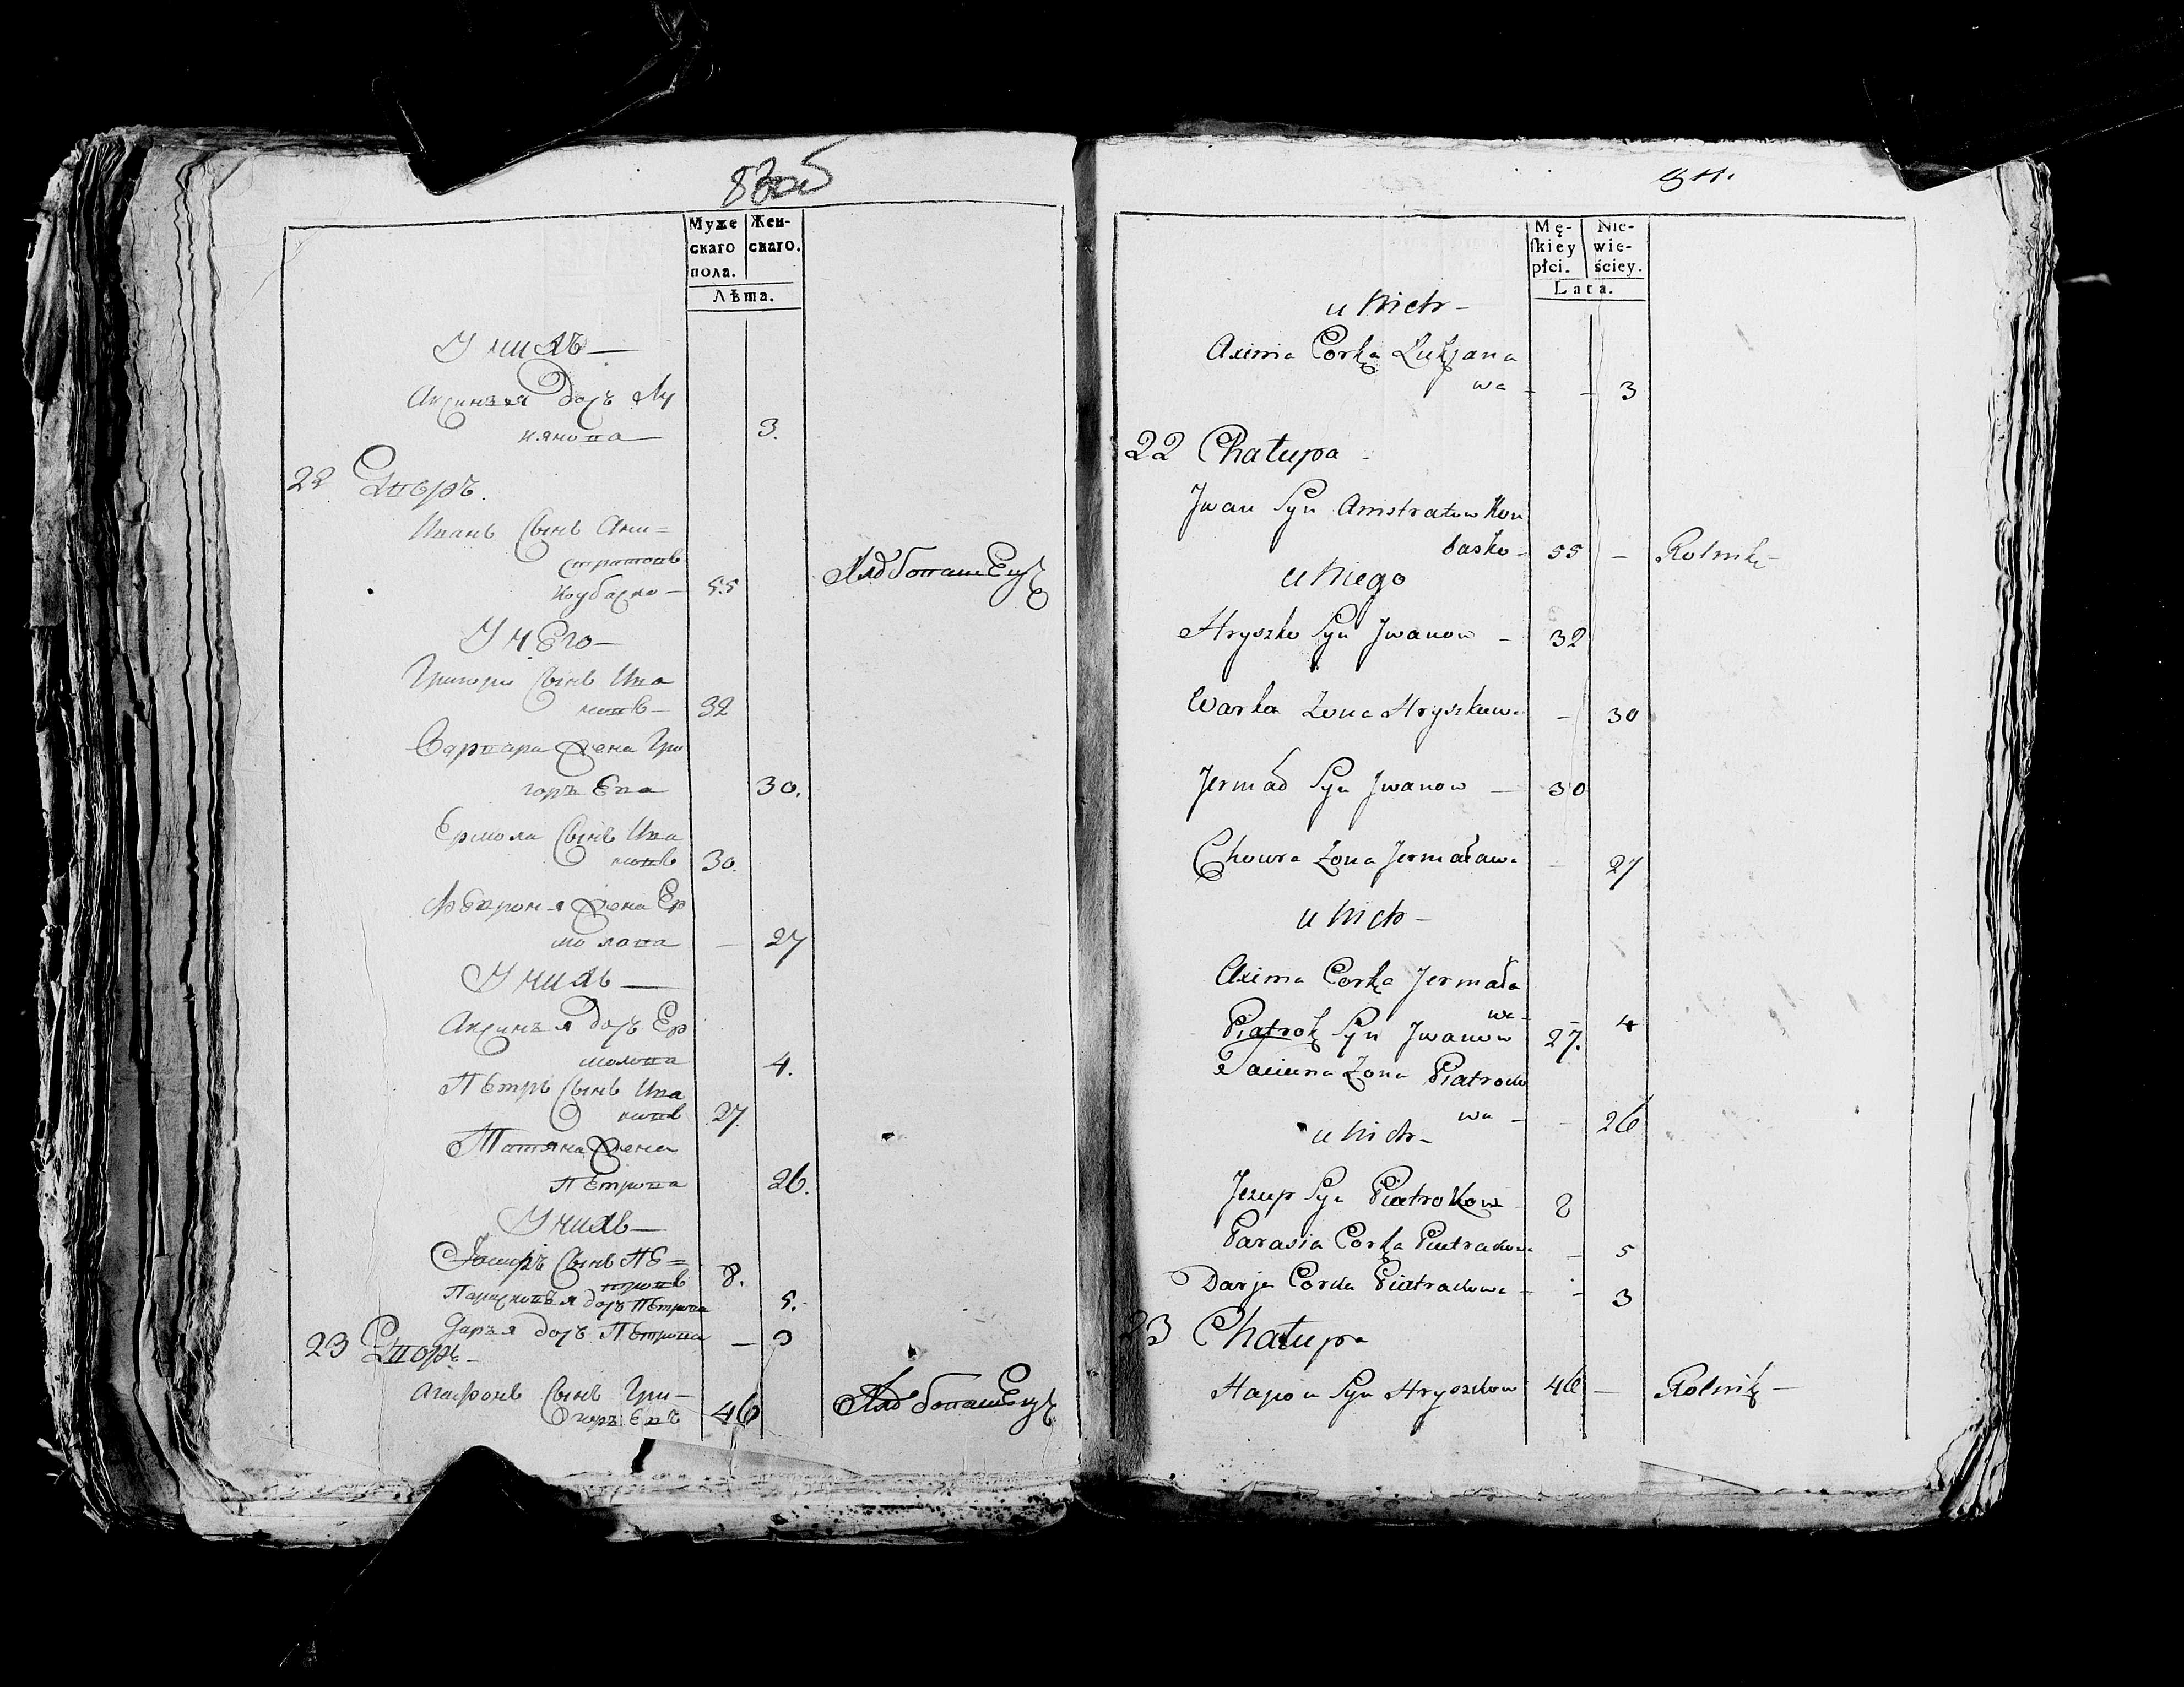 83 об
Муже
скаго
пола.
Жен-
скаго.
Лѣта.
У нихъ —
Аксинья дочь Лу
кянова — 3.
22 Дворъ.
Иванъ Сынъ Ани=
стратовъ
Кубаско — 55 Хлѣбопашецъ
У него —
Григори Сынъ Ива
новъ — 32
Варвара жена Гри
горьева 30.
Ермола Сынъ Ива
новъ 30.
Февроня жена Ер
молова — 27
У нихъ —
Аксинья дочь Ер
молова 4.
Петръ Сынъ Ива
новъ 27.
Татяна жена
Петрова 26.
У нихъ —
Сынъ Пе=
тровъ 8.
Парасковья дочь Петрова 5.
Дарья дочь Петрова — 3
23 Дворъ —
Агафонъ Сынъ Гри—
горьевъ 46 Хлѣбопашецъ
Mę-
skiey
płci.
Nie-
wie-
ściey.
Lata.
u Nich —
Axinia Corka Lukjana
wa - - 3
22 Chałupa -
Jwan Syn Anistratow Kou
basko - 55 — Rolnik —
u Niego
Hryszko Syn Jwanow — 32
Warka Zona Hryszkowa — 30
Jermał Syn Jwanow — 30
Chowra Zona Jermaława — 27
u Nich —
Axinia Corka Jermała
wa - - 4
Piatrok Syn Jwanow 27.
Taciana Zona Piatroko
wa - - 26
u Nich —
Jezup Syn Piatrokow 8
Parasia Corka Piatrakowa - 5
Darja Corka Piatrakowa - - 3
23 Chałupa
Hapon Syn Hryszkow 46 — Rolnik —